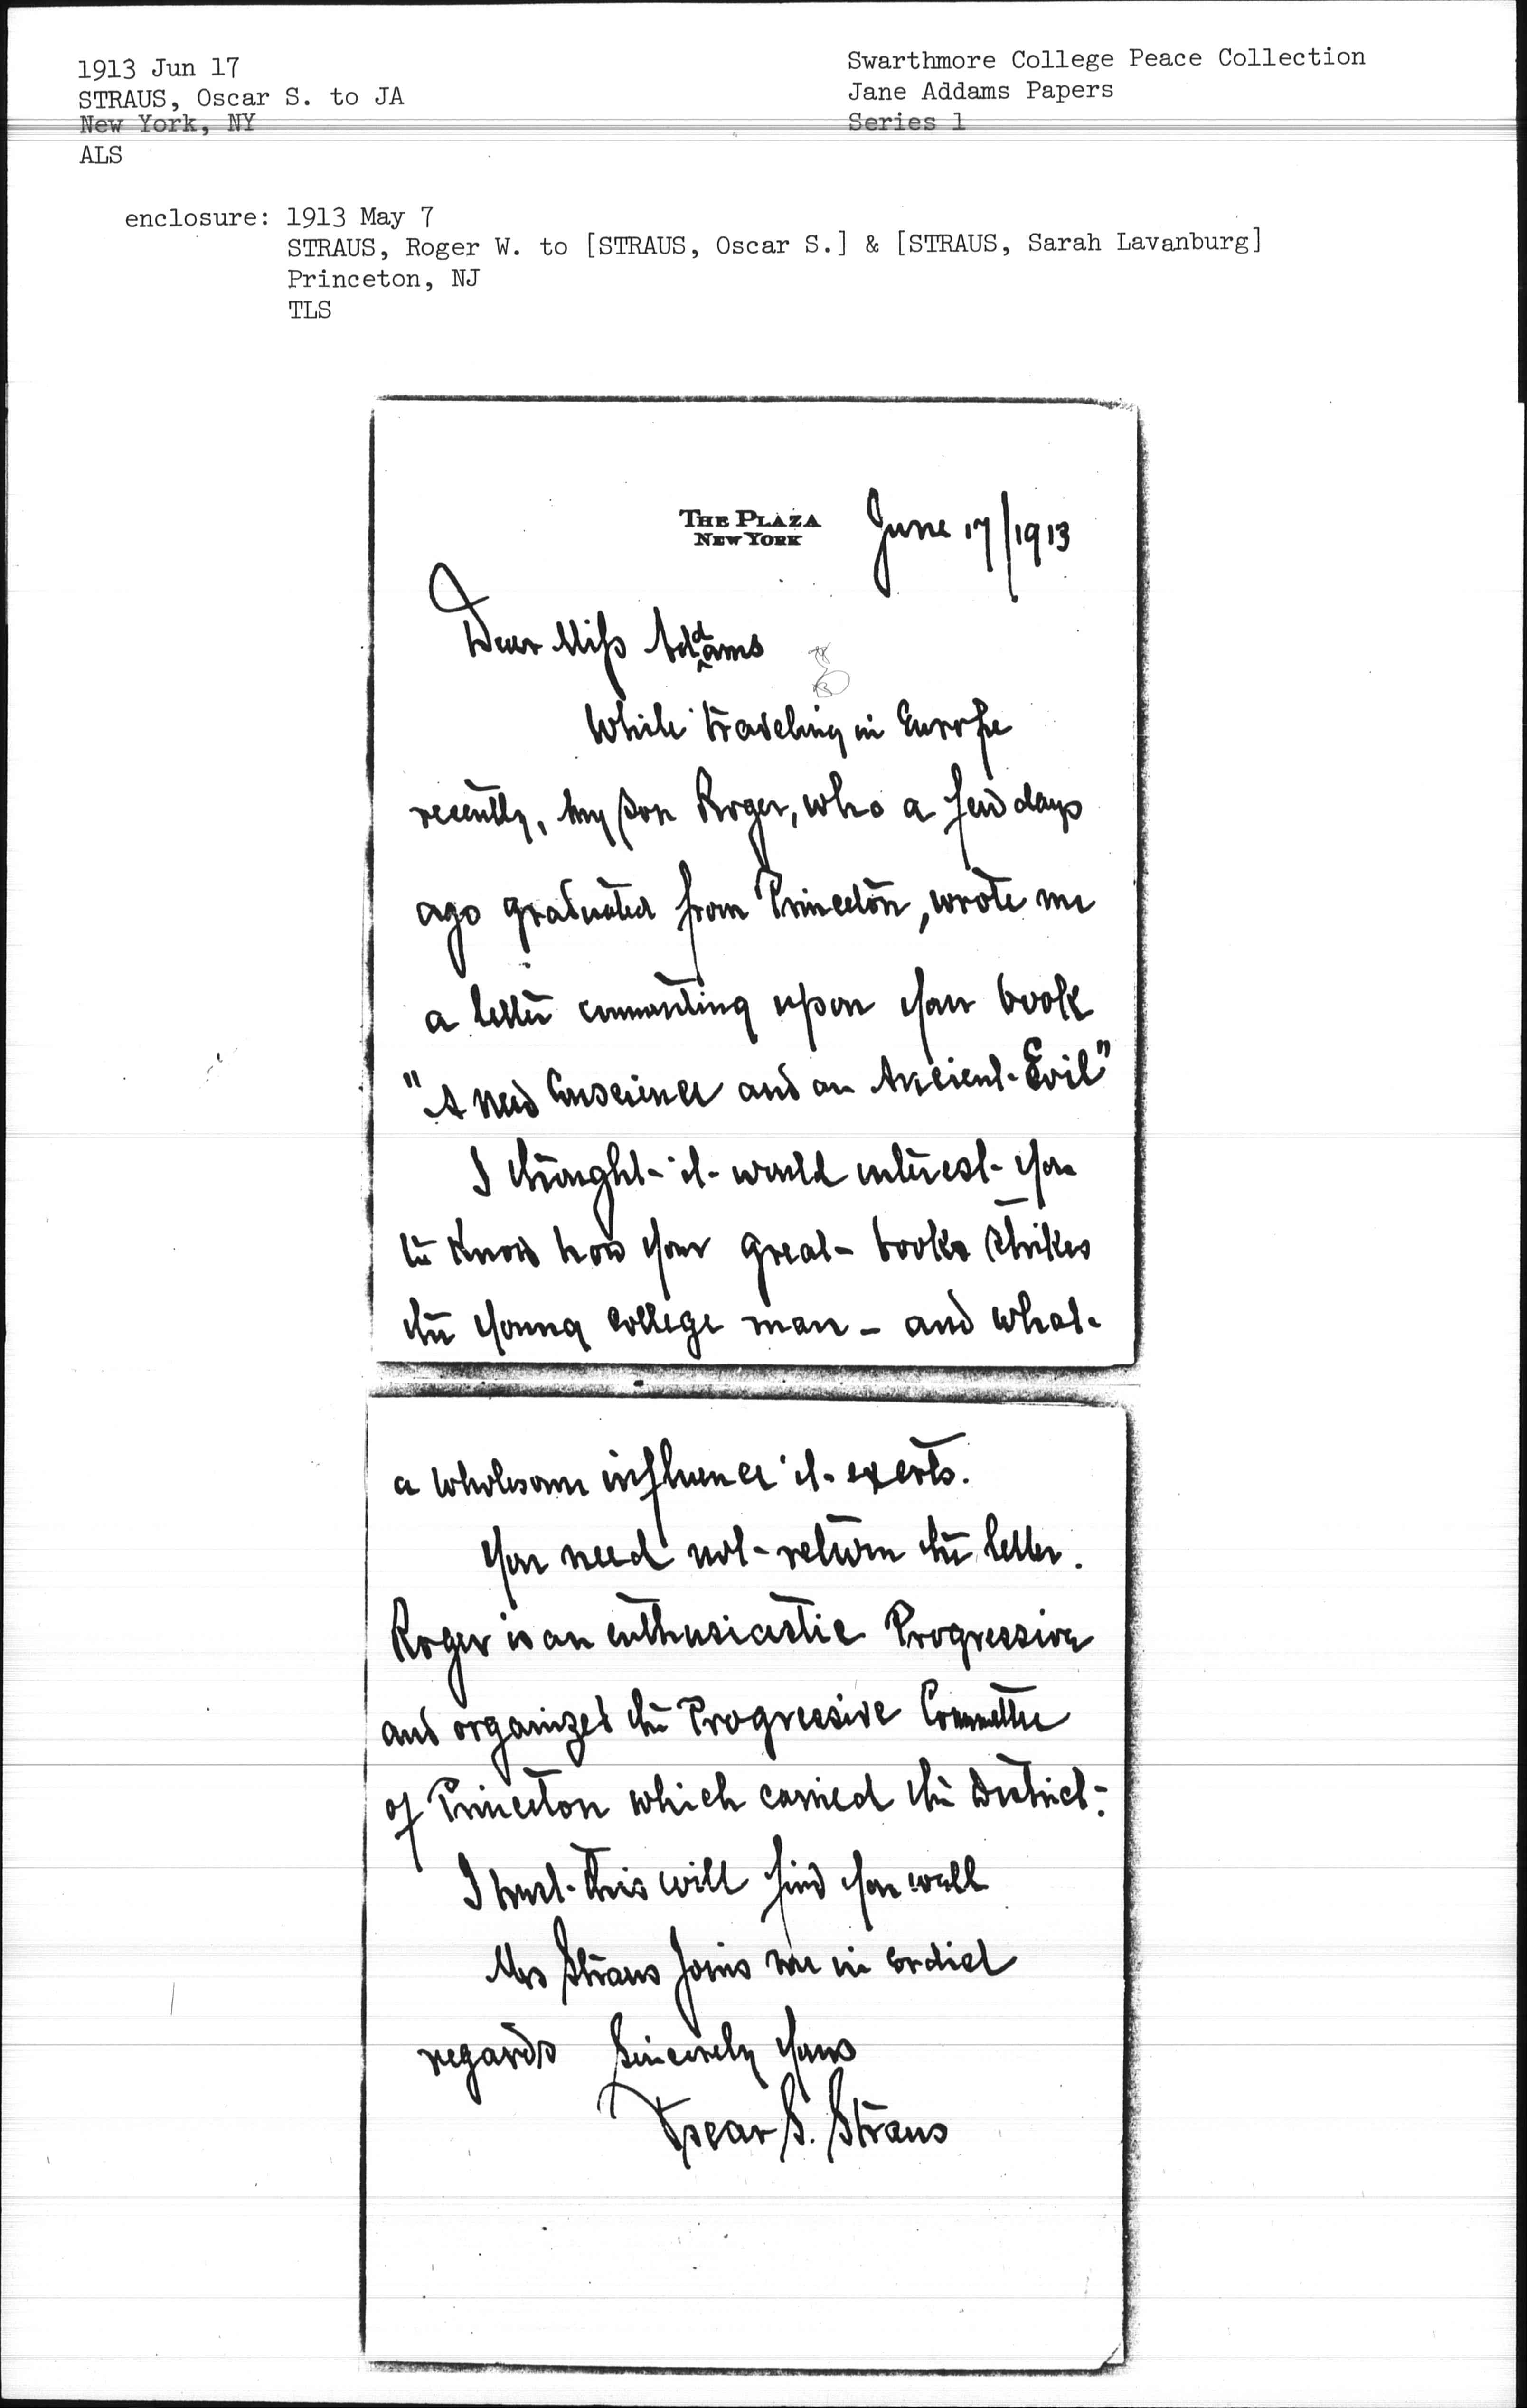 1913 Jun 17
STRAUS, Oscar S. to JA
New York, NY
ALS
Swarthmore College Peace Collection
Jane Addams Papers
Series 1
enclosure: 1913 May 7
STRAUS, Roger W. to [STRAUS, Oscar S.] & [STRAUS, Sarah Lavanburg]
Princeton, NJ
TLS
THE PLAZA
NEW YORK
June 17/1913
Dear Miss Addams
While traveling in Europe
recently, my son Roger, who a few days
ago graduated from Princeton, wrote me
a letter commenting upon your book
"A New Conscience and an Ancient Evil"
I thought it would interest you
to know how your great books strikes
the young college man - and what
a wholesome influence it exerts.
You need not return the letter.
Roger is an enthusiastic Progressive
and organized the Progressive Committee
of Princeton which carried the District.
I trust this will find you well
Mrs Straus joins me in cordial
regards Sincerely yours
Oscar S. Straus